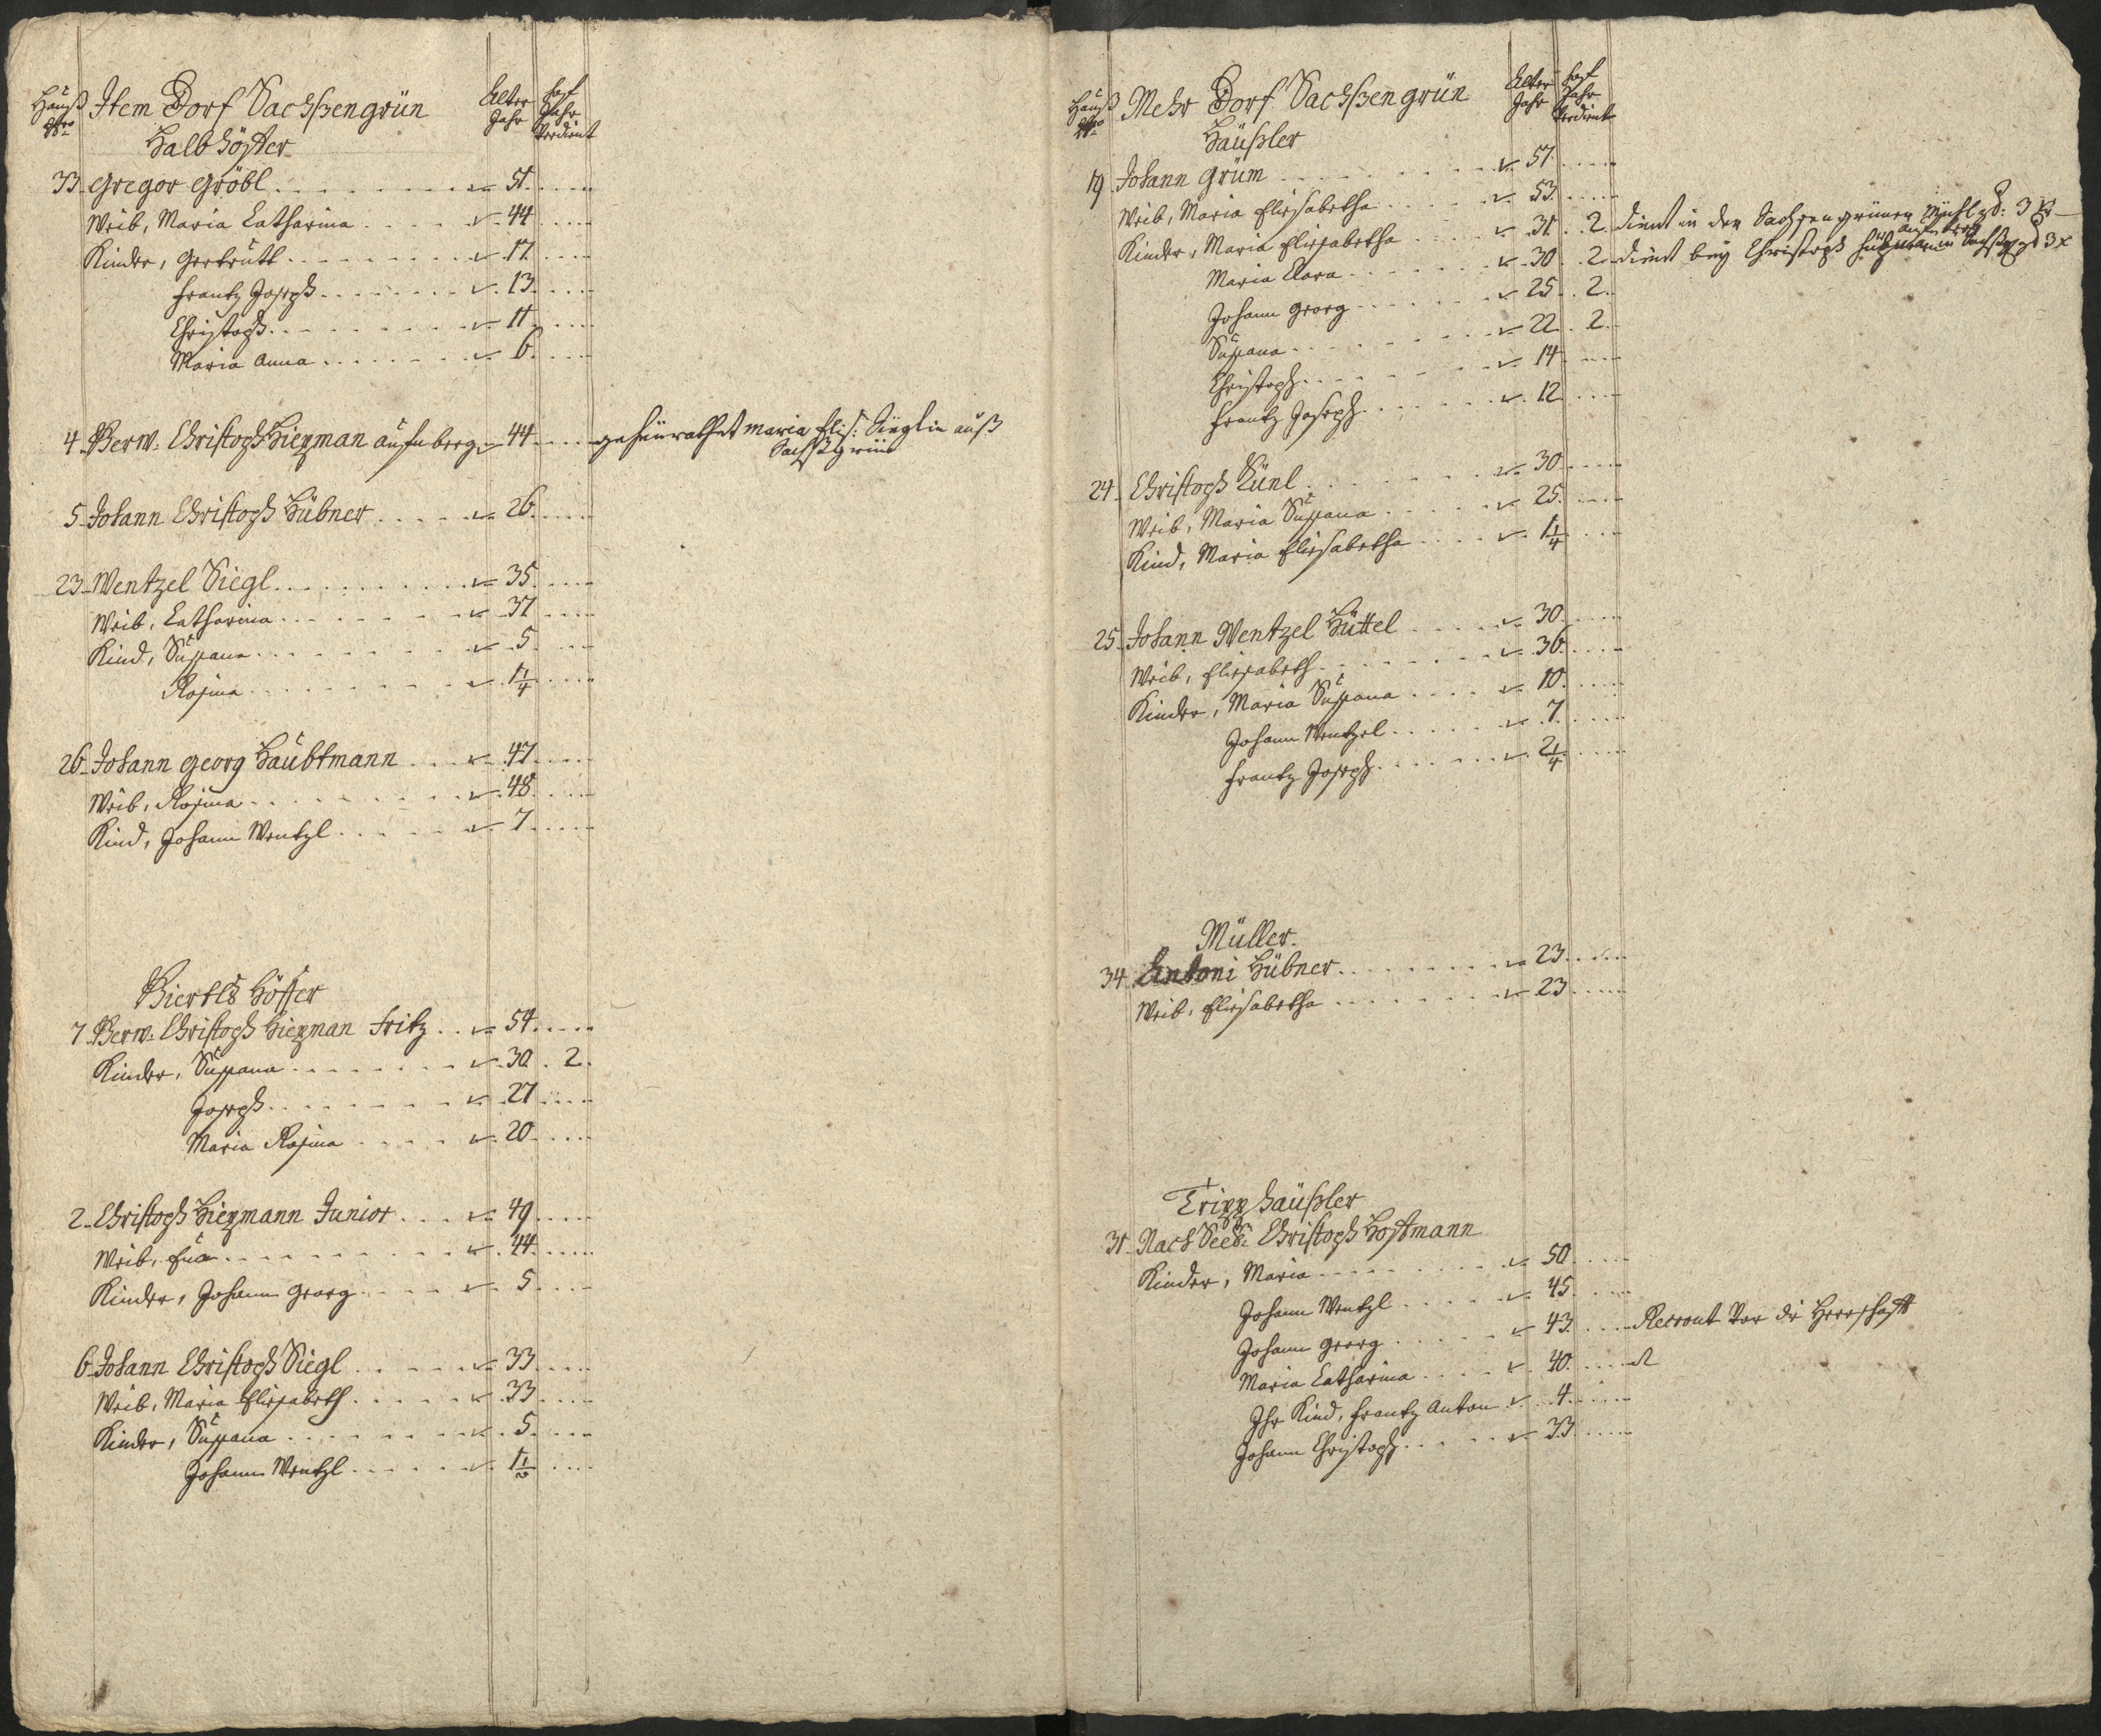 Hauß Nro Item Dorf Sachßengrün Alter Jahr Hof Jahr Verdient
Halb Höffer
33 Gregor Gröbl 51
Weib, Maria Catharina 44
Kinder, Gertrutt 17
Frantz Joseph 13
Christoph 11
Maria Anna 6
4 Verw. Christoph Hieyman aufn berg 44 geheürathet Maria Elis: Sieglin auß
Sachßgrün
5 Johann Christoph Hübner 26
23 Wentzel Siegl 35
Weib, Catharina 37
Kind, Sußana 5
Rosina 1 1/4
26 Johann Georg Haubtmann 47
Weib, Rosina 48
Kind, Johann Wentzl 7
Viertls Höffer
7 Verw. Christoph Hieyman Fritz 54
Kinder, Sußana 30 2
Joseph 27
Maria Rosina 20
2 Christoph Hieymann Junior 49
Weib, Eua 44
Kinder, Johann Georg 5
6 Johann Christoph Siegl 33
Weib, Maria Elisabeth 33
Kinder, Sußana 5
Johann Wentzl 1 1/2
Hauß Nro Mehr Dorf Sachßengrün Alter Jahr Hof Jahr Verdient
Häußler
19 Johann Grüm 57
Weib, Maria Elisabetha 53
Kinder, Maria Elisabetha 31 2 dient in der Sachsengrüner Mühl 3
Maria Clara 30 2 dient bey Christoph 3
Johann Georg 25 2
Sußana 22 2
Christoph 14
Frantz Joseph 12
24 Christoph Künl 30
Weib, Maria Sußana 25
Kind, Maria Elisabetha 1 1/4
25 Johann Wentzel Hüttel 30
Weib, Elisabeth 36
Kinder, Maria Sußana 10
Johann Wentzel 7
Frantz Joseph 2 1/4
Müller
34 Antoni Hübner 23
Weib, Elisabetha 23
Tripp Häußler
31 Nach Seel: Christoph Hostmann
Kinder, Maria 50
Johann Wentzl 45
Johann Georg 43 Recrout vor die Herrschafft
Maria Catharina 40
Ihr Kind, Frantz Anton 4
Johann Christoph 33